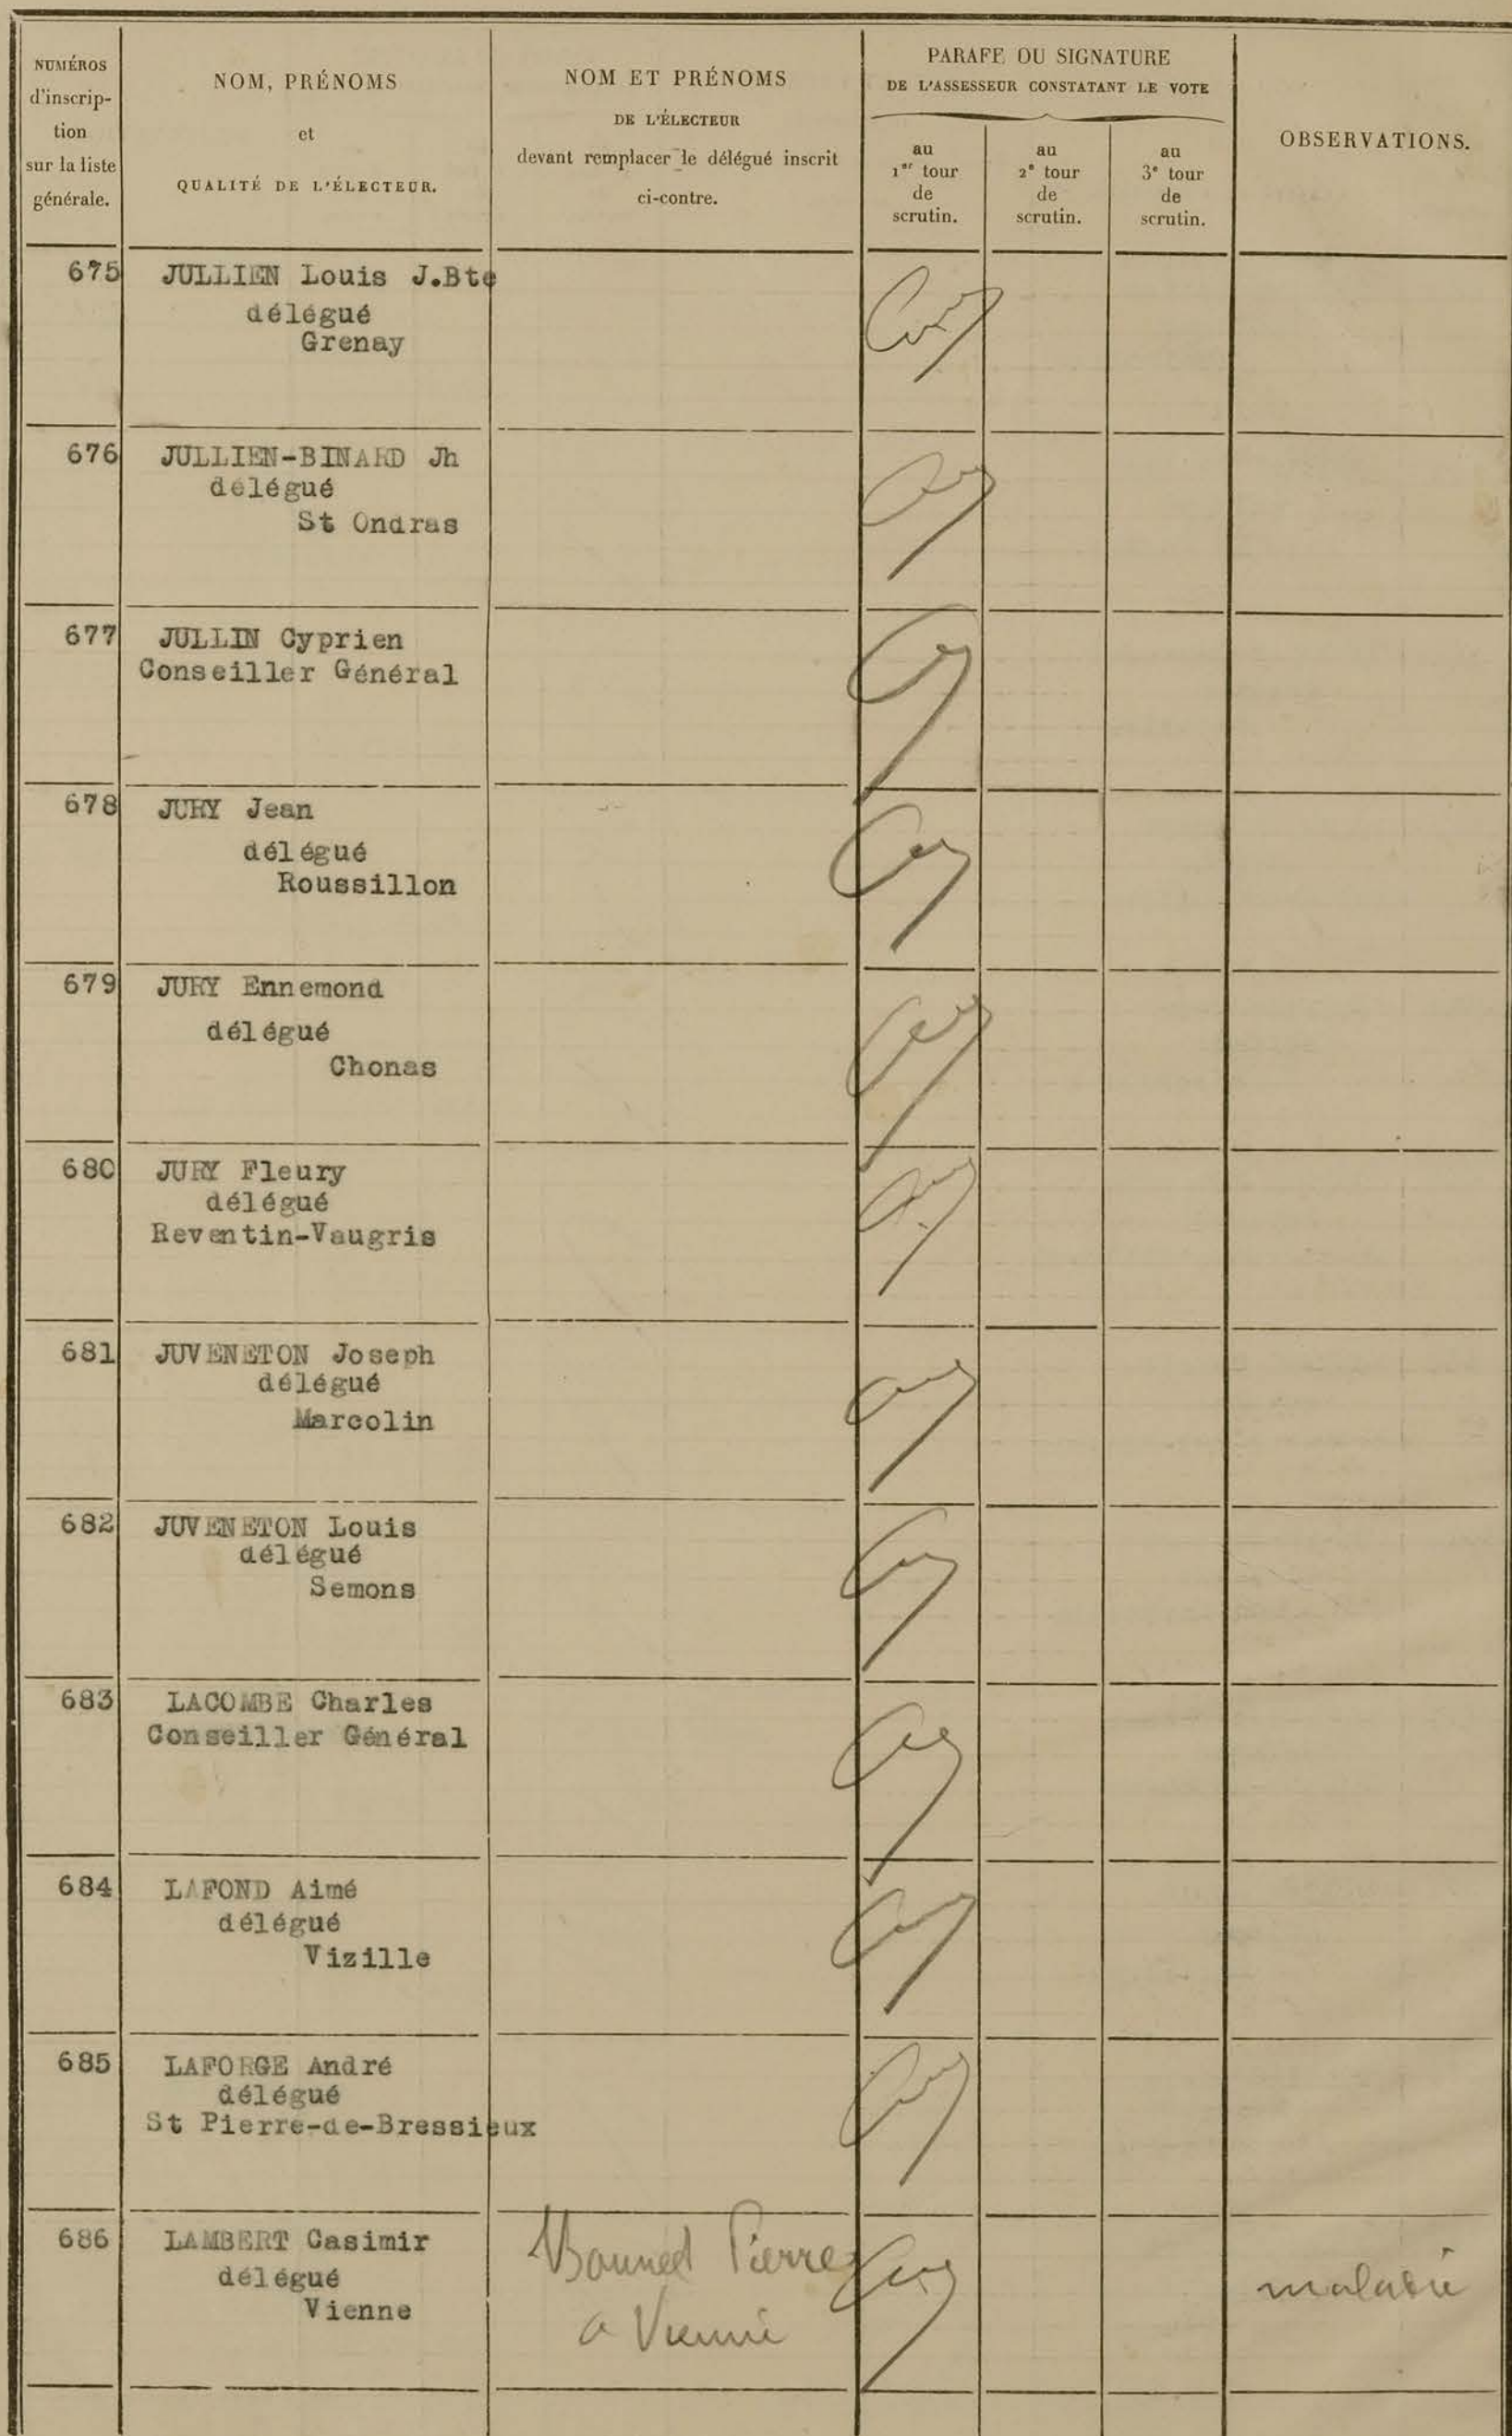 NUMÉROS
d'inscrip-
tion
sur la liste
générale.
NOM, PRÉNOMS
et
QUALITÉ DE L'ÉLECTEUR.
NOM ET PRÉNOMS
DE L'ÉLECTEUR
devant remplacer le délégué inscrit
ci-contre.
PARAFE OU SIGNATURE
DE L'ASSESSEUR CONSTATANT LE VOTE
au
1er tour
de
scrutin.
au
2e tour
de
scrutin.
au
3e tour
de
scrutin.
OBSERVATIONS.
675 JULLIEN Louis J.Bte
délégué
Grenay
676 JULLIEN-BINARD Jh
délégué
St Ondras
677 JULLIN Cyprien
Conseiller Général
678 JURY Jean
délégué
Roussillon
679 JURY Ennemond
délégué
Chonas
680 JURY Fleury
délégué
Reventin-Vaugris
681 JUVENETON Joseph
délégué
Marcolin
682 JUVENETON Louis
délégué
Semons
683 LACOMBE Charles
Conseiller Général
684 LAFOND Aimé
délégué
Vizille
685 LAFORGE André
délégué
St Pierre-de-Bressieux
686 LAMBERT Casimir
délégué
Vienne
Pierre
a Vienne
maladie